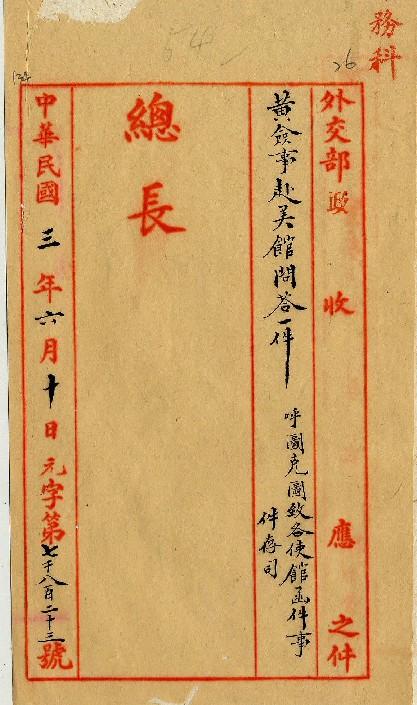 務科
26
外交部收收應之件
黃僉事赴美館問答一件
呼圖克圖致各使館函件事
件存司
總長
中華民國三年六月十日元字第七千八百二十三號
134